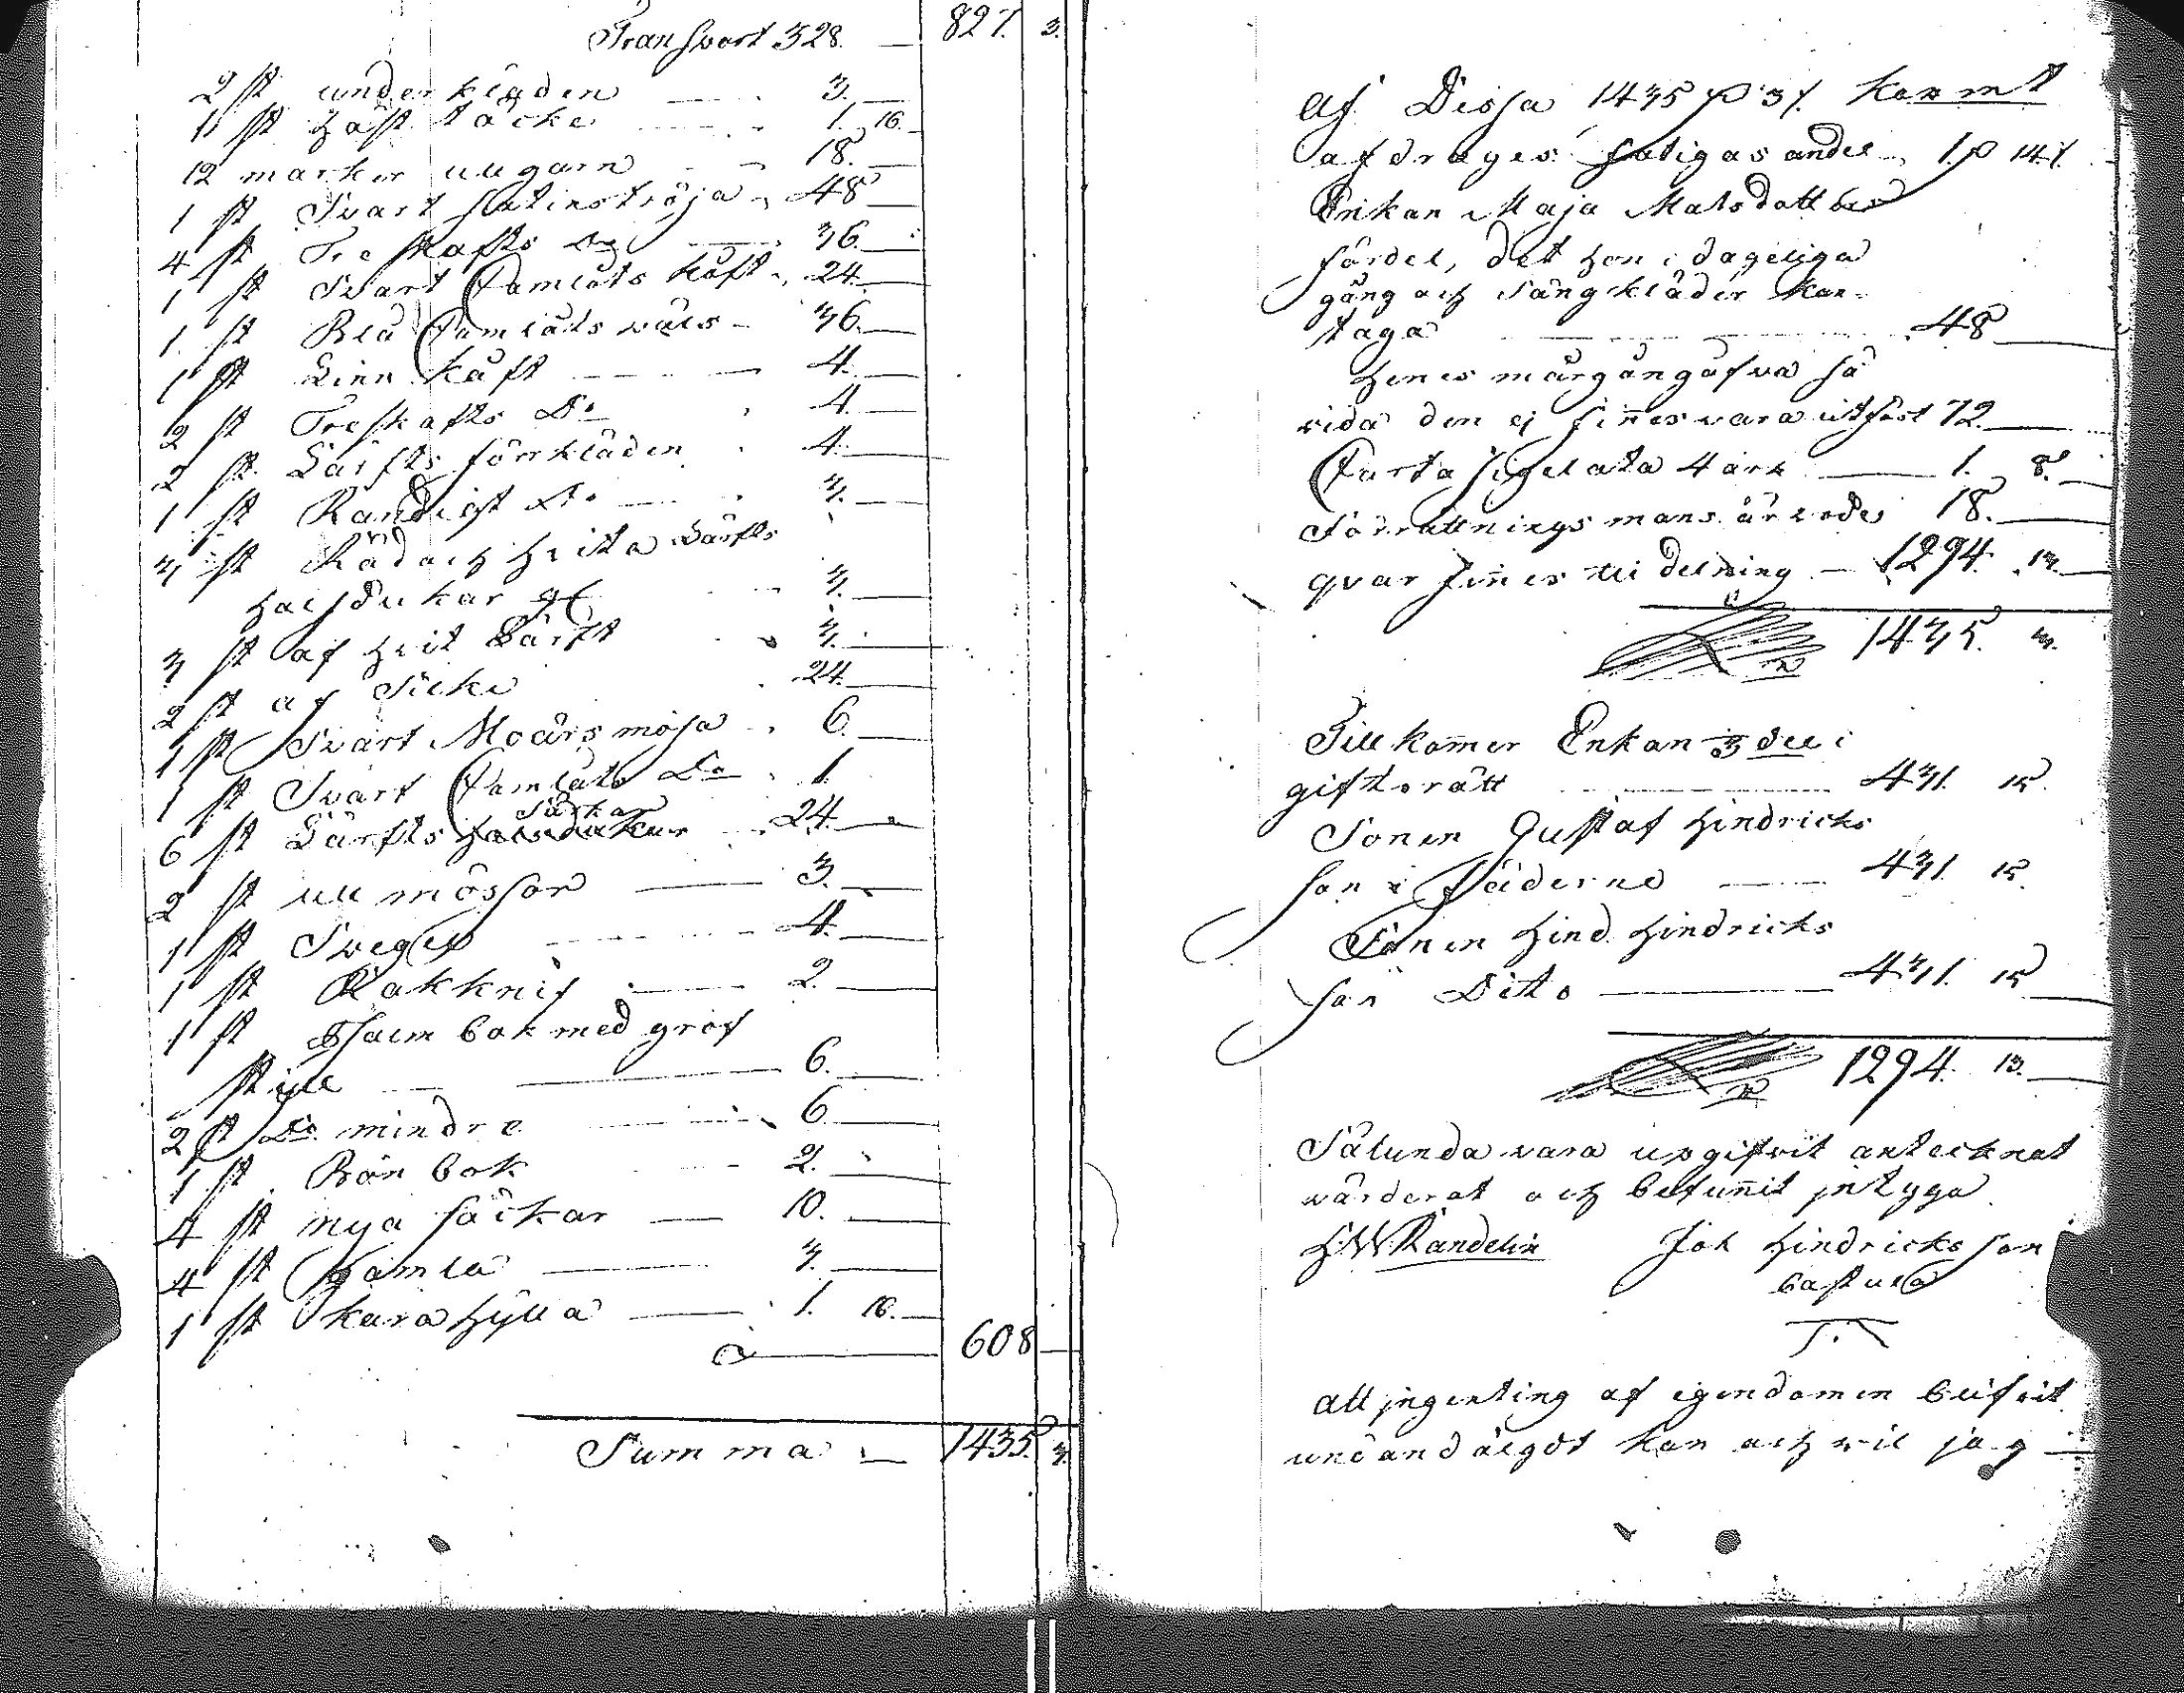 Transport 328. — 827. 3.
2 st underkläden — 3. —
1 st häst täcke — 1. 16.
12 marker ullgarn — 18. —
1 st Svart satinströja — 48 —
4 st Treskafts D:o — 36. —
1 st Svart Camlåts kåft — 24. —
1. st Blå Camlåts — 36. —
1 st Linn kåft — 4. —
2 st Treskafts D:o — 4. —
2 st Lärfts förrkläden — 4. —
1 st Randigt D:o — 3. —
3 st Röd och hvita Lärfts
halsdukar — 3. —
3 st af hvit Lärft — 3. —
2 st af Silke — 24. —
1 st Svart Moårs mösa — 6. —
1 st Svart Camlåts D:o — 1.
6 st Lärfts Särkar — 24. —
2 st ull mössor — 3. —
1 st — 4. —
1 st Rakknif — 2. —
1 st Psalmbok med gröf
stijl — 6. —
2 st D:o mindre — 6. —
1 st Bön bok — 2. —
4 st nya säckar — 10. —
4 st gamla — 3. —
1 st hylla — 1. 16. —
608 —
Summa — 1435. 3.
af Dessa 1435 3
afdrages fatigas andel 1 14
Enkan Maja Matsdotters
fördel, det hon i dageliga
gång och Sängkläder kan
taga — 48 —
henes mårgångåfva så
vida den ej finnes vara utfäst 72. —
Carta Sigelata 4 ark — 1. 8. —
Förrättningsmans årvode 18. —
qvar finnes till delning — 1294. 13. —
1435. 3.
Tillkommer Enkan 3 del i
giftorätt — 431 15.
Sonen Gustaf Hindricks
son i fäderne — 431. 15.
Sonen Hind. Hindricks
son Dito — 431. 15
1294. 13. —
Sålunda vara upgifvit antecknat
värderat och befunnit intyga
H W Randelin Joh Hindricks son
Att ingenting af egendomen blifvit
undandålgdt kan och vil jag —